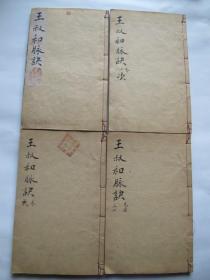 王叔和脉訣
王叔和脉訣
王叔和脉訣
王叔和脉訣